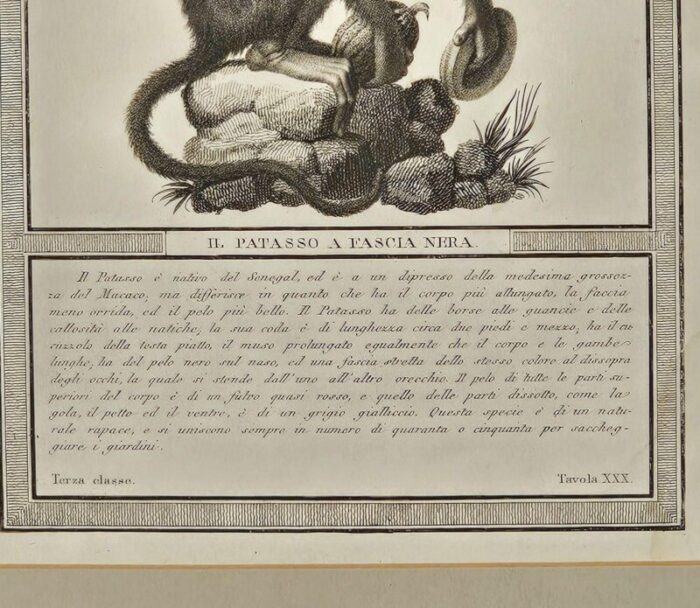 IL PATASSO A FASCIA NERA.
Il Patasso è nativo del Senegal, ed è a un dipresso della medesima grossez-
za del Macaco, ma differisce in quanto che ha il corpo più allungato, la faccia
meno orrida, ed il pelo più bello. Il Patasso ha delle borse alle guancie e delle
callosità alle natiche, la sua coda è di lunghezza circa due piedi e mezzo, ha il cu-
cuzzolo della testa piatto, il muso prolungato egualmente che il corpo e le gambe
lunghe, ha del pelo nero sul naso, ed una fascia stretta dello stesso colore al dissopra
degli occhi, la quale si stende dall'uno all'altro orecchio. Il pelo di tutte le parti su-
periori del corpo è di un fulvo quasi rosso, e quello delle parti dissotto, come la
gola, il petto ed il ventre, è di un grigio gialliccio. Questa specie è di un natu-
rale rapace, e si uniscono sempre in numero di quaranta o cinquanta per saccheg-
giare i giardini.
Terza classe.
Tavola XXX.